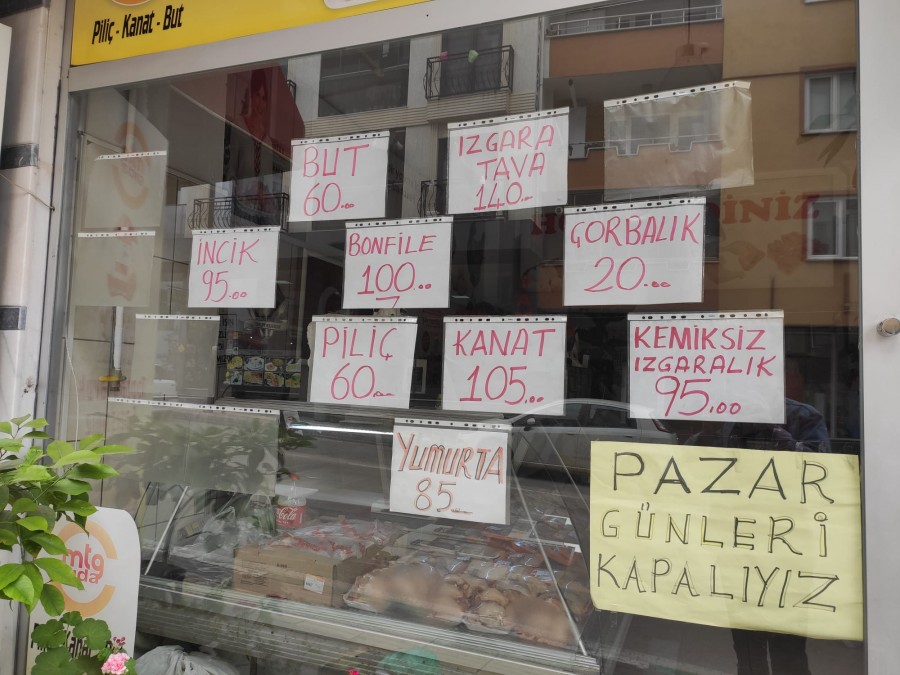 Piliç - Kanat - But
BUT
60.00
IZGARA
TAVA
140.00
İNCİK
95.00
BONFİLE
100.00
ÇORBALIK
20.00
PİLİÇ
60.00
KANAT
105.00
KEMİKSİZ
IZGARALIK
95.00
YUMURTA
85
PAZAR
GÜNLERİ
KAPALIYIZ
mtg